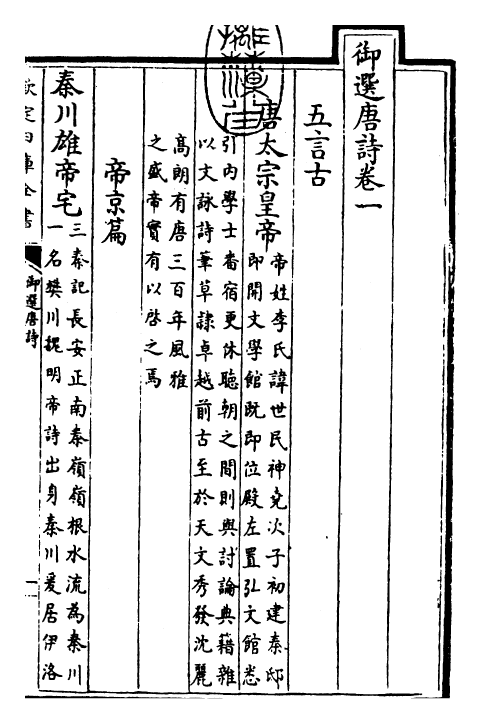 御選唐詩卷一
五言古
唐太宗皇帝
帝姓李氏諱世民神堯次子初建秦邸
即開文學館既即位殿左置弘文館悉
引內學士番宿更休聽朝之間則與討論典籍雜
以文詠詩筆草隸卓越前古至於天文秀發沈麗
高朗有唐三百年風雅
之盛帝實有以啓之焉
帝京篇
秦川雄帝宅
三秦記長安正南秦嶺嶺根水流為秦川
一名樊川魏明帝詩出身秦川爰居伊洛
欽定四庫全書
御選唐詩
一